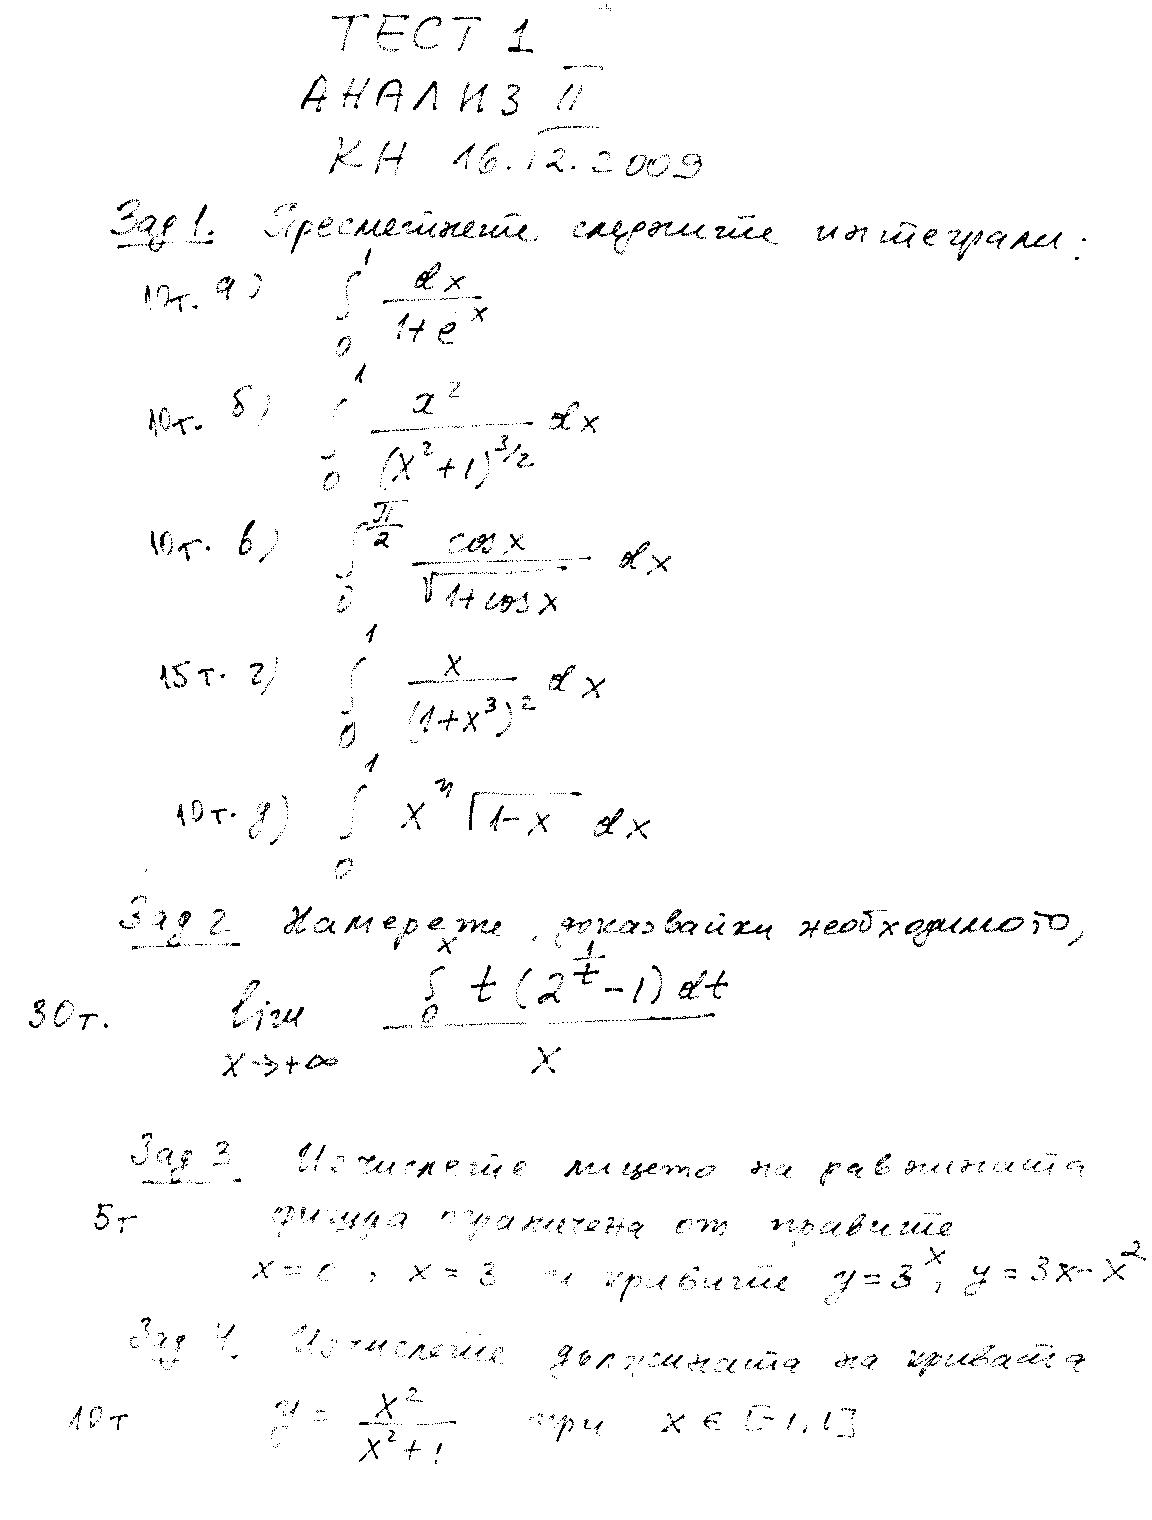 ТЕСТ 1
АНАЛИЗ II
КН 16.12.2009
Зад 1. Пресметнете следните интеграли:
10т. а) ∫₀¹ dx/(1+e^x)
10т. б) ∫₀¹ x²/(x²+1)^(3/2) dx
10т. в) ∫₀^(π/2) cos x/√(1+cos x) dx
15т. г) ∫₀¹ x/(1+x³)² dx
10т. д) ∫₀¹ xⁿ √(1-x) dx
Зад 2 Намерете, доказвайки необходимото,
30т. lim x→+∞ ∫₀ˣ t(2^(1/t)-1)dt / x
Зад 3 Изчислете лицето на равнината
5т фигура ограничена от правите
x=0, x=3 и кривите y=3^x, y=3x-x²
Зад 4. Изчислете дължината на кривата
10т y = x²/(x²+1) при x∈[-1,1]